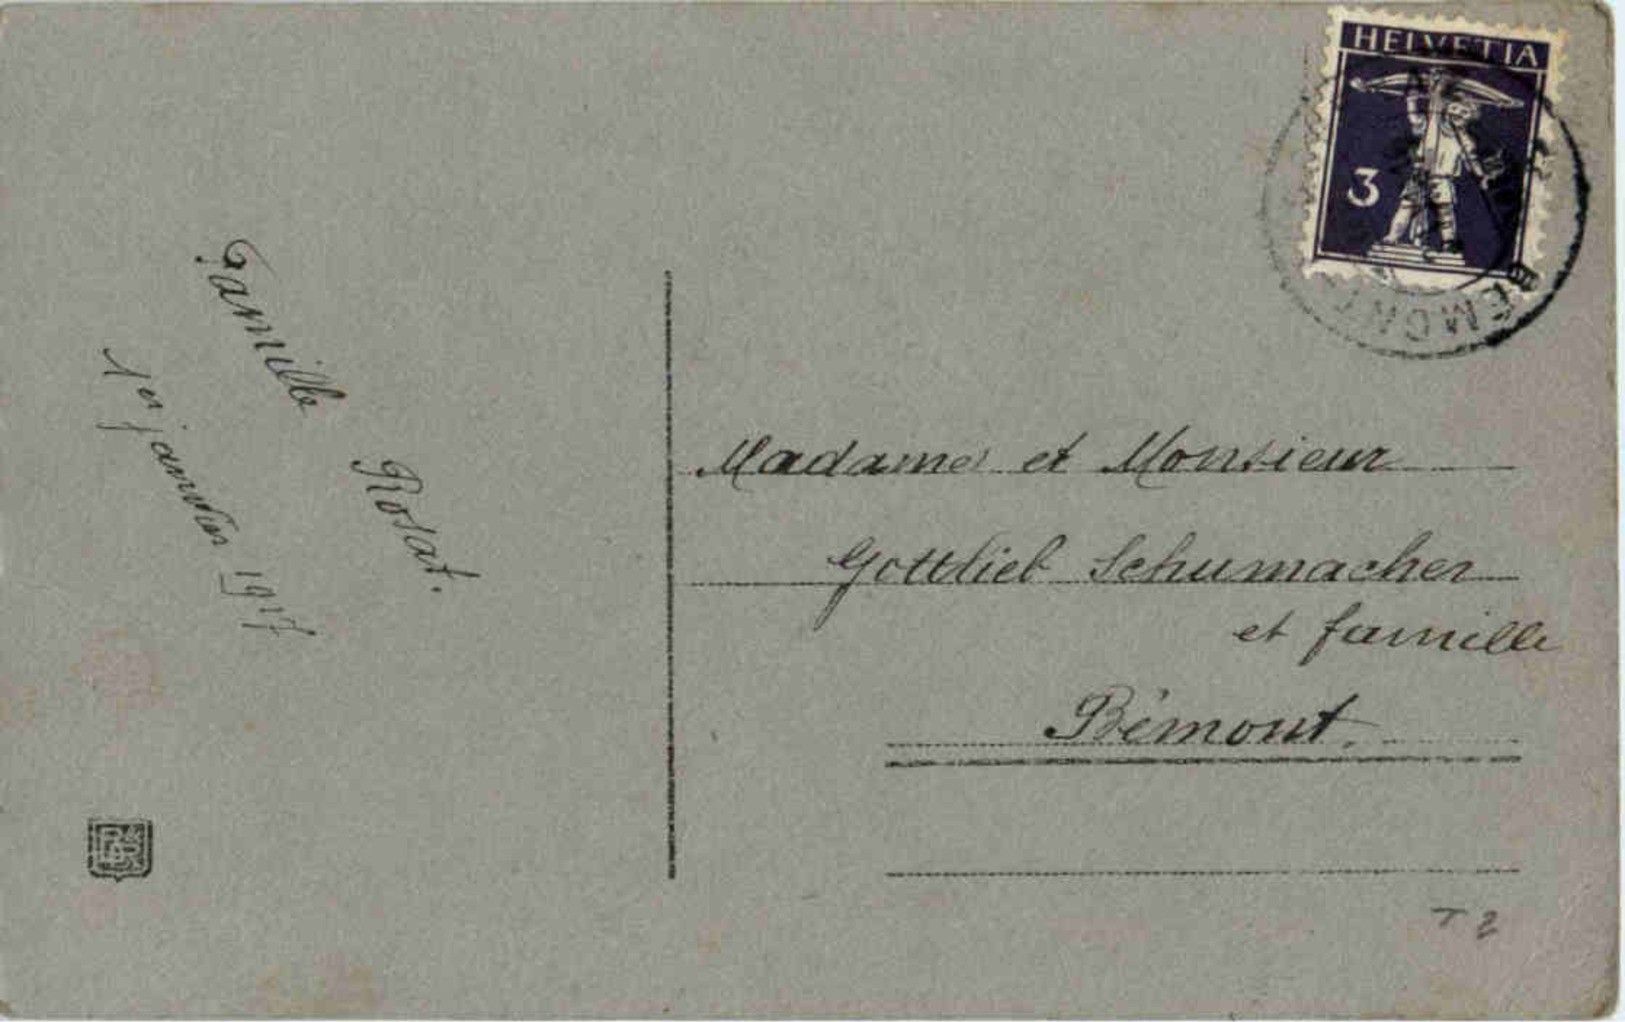 Famille Rosat.
1er janvier 1917
HELVETIA
3
BÉMONT
Madame et Monsieur
Gottlieb Schumacher
et famille
Bémont.
T 2